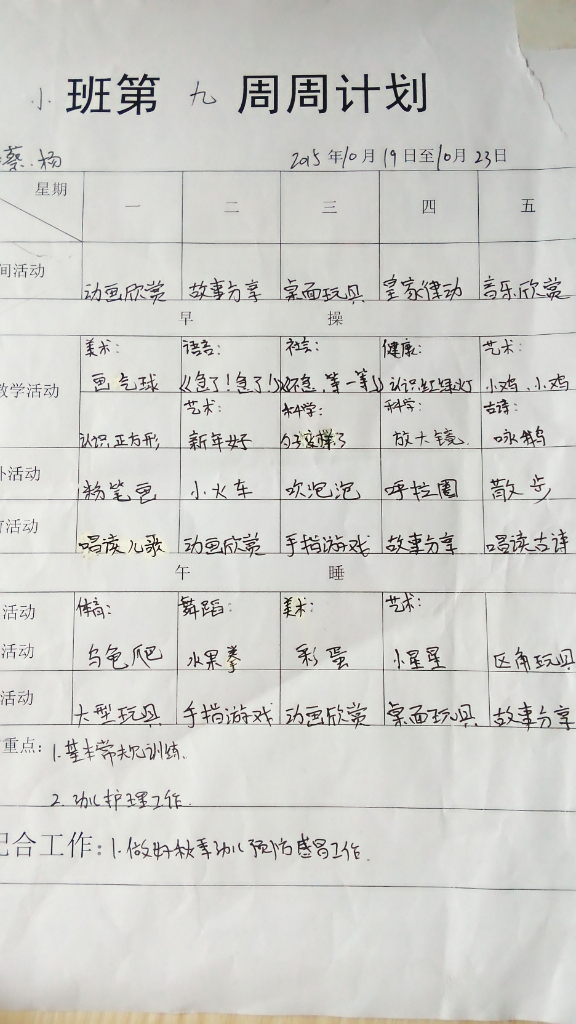 小 班第 九 周周计划
蔡.杨 2015年10月19日至10月23日
星期 一 二 三 四 五
间活动 动画欣赏 故事分享 桌面玩具 皇家律动 音乐欣赏
早 操
美术: 语言: 社会: 健康: 艺术:
教学活动 画气球 《急了!急了!》 《不急,等一等》 认识红绿灯 小鸡、小鸡
艺术: 科学: 科学: 古诗:
认识正方形 新年好 变样了 放大镜 咏鹅
外活动 粉笔画 小火车 吹泡泡 呼拉圈 散步
活动 唱读儿歌 动画欣赏 手指游戏 故事分享 唱读古诗
午 睡
活动 体育: 舞蹈: 美术: 艺术:
活动 乌龟爬 水果拳 彩蛋 小星星 区角玩具
活动 大型玩具 手指游戏 动画欣赏 桌面玩具 故事分享
重点: 1.基本常规训练.
2.幼儿护理工作.
配合工作: 1.做好秋季幼儿预防感冒工作.